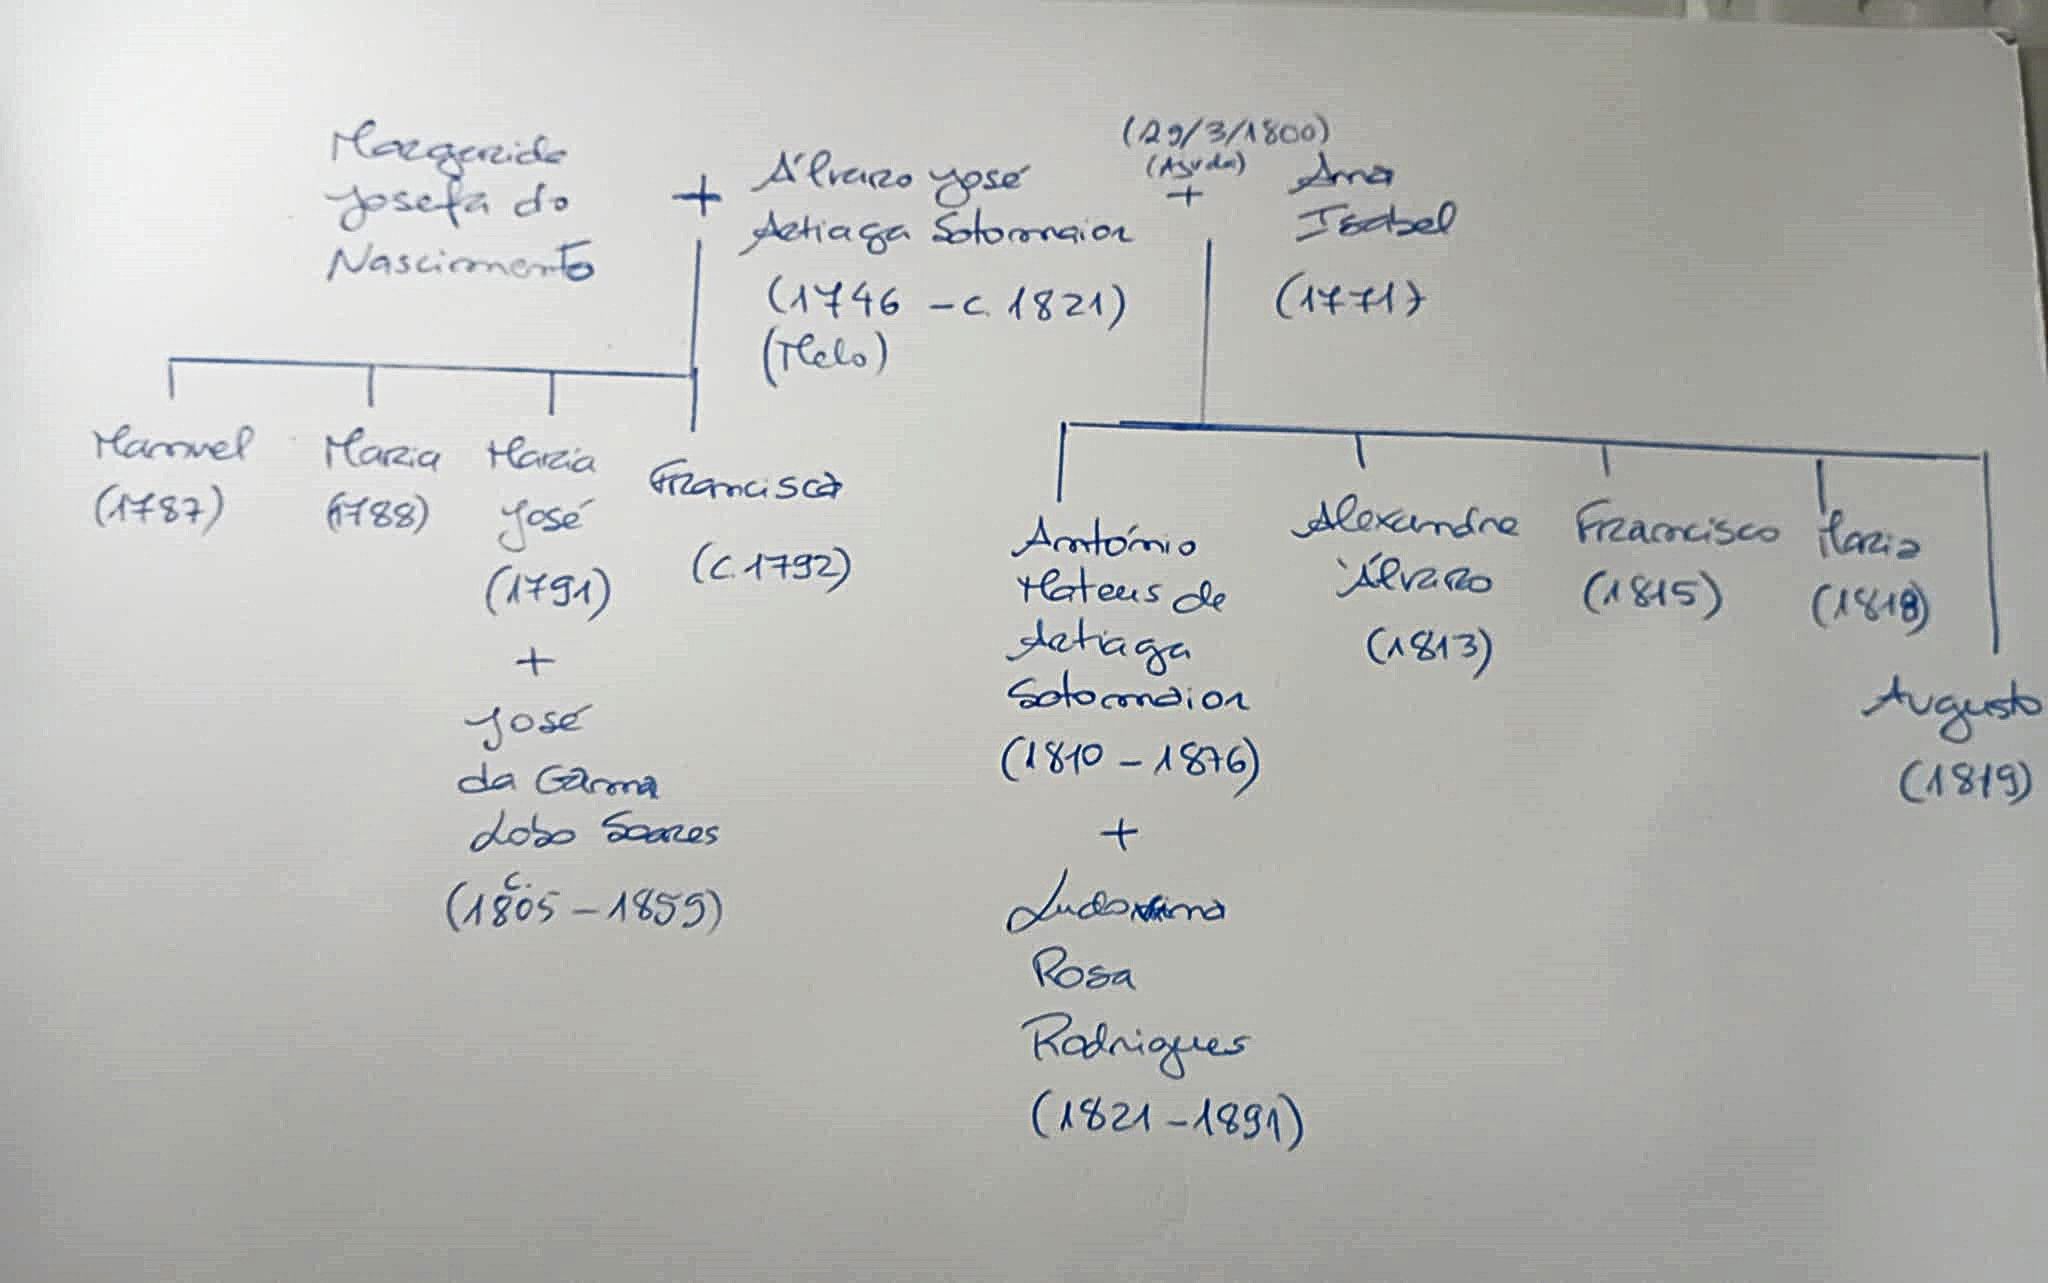 Margarida
Josefa do
Nascimento
+
Álvaro José
Artiaga Sotomaior
(1746 – c. 1821)
(Melo)
(29/3/1800)
(Ajuda)
+
Ana
Isabel
(1771)
Manuel
(1787)
Maria
(1788)
Maria
José
(1791)
+
José
da Gama
Lobo Soares
(c. 1805 – 1859)
Francisca
(c. 1792)
António
Mateus de
Artiaga
Sotomaior
(1810 – 1876)
+
Rosa
Rodrigues
(1821 – 1891)
Alexandre
Álvaro
(1813)
Francisco
(1815)
Maria
(1818)
Augusto
(1819)